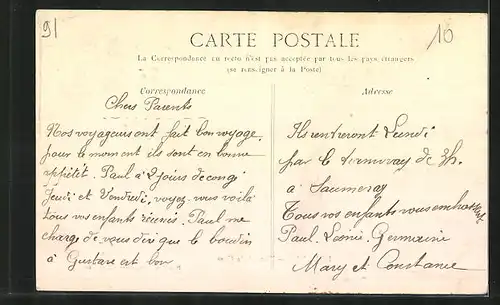 91
10
CARTE POSTALE
La Correspondance au recto n'est pas acceptée par tous les pays étrangers
(se renseigner à la Poste)
Correspondance
Adresse
Chers Parents
Nos voyageurs ont fait bon voyage,
pour le moment ils sont en bonne
appétit. Paul a 2 jours de congé
Jeudi et Vendredi, voyez-vous voilà
tous vos enfants réunis. Paul me
charge de vous dire que le boudin
à Gustave est bon
Ils rentreront Lundi
par le tramway de 3h.
à Saumeray
Tous vos enfants vous embrassent
Paul. Louis. Germaine
Mary et Constance